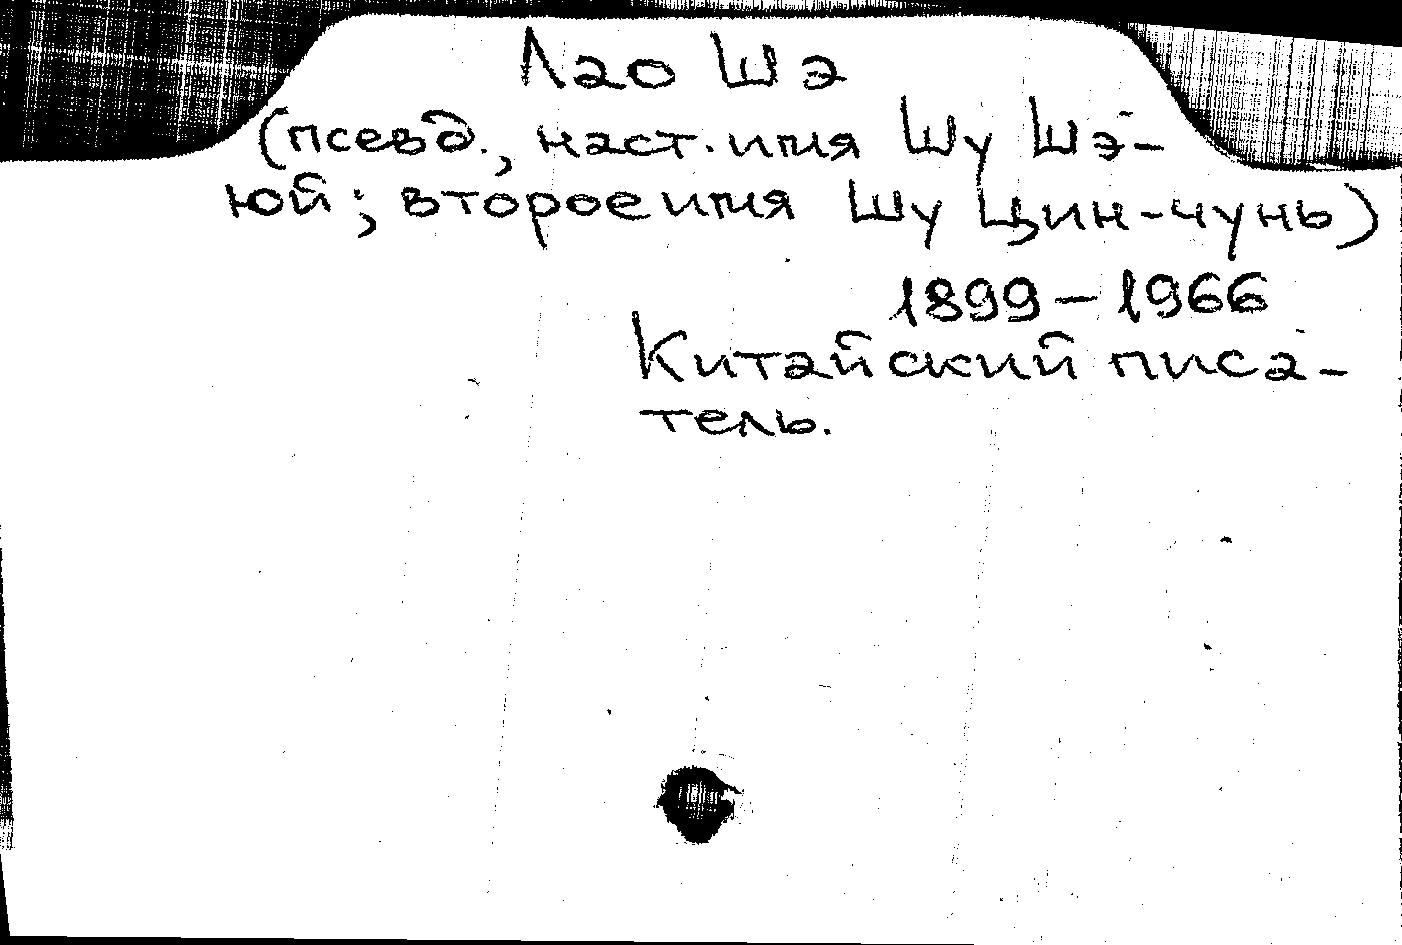 Лао Шэ
(псевд., наст. имя Шу Шэ-
юй; второе имя Шу Цин-чунь)
1899 – 1966
Китайский писа-
тель.